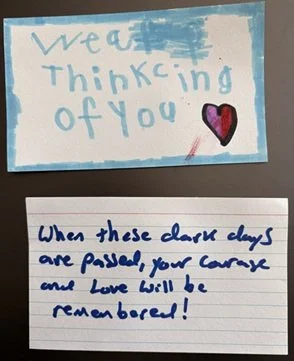 We a
Thinkcing
of you
When these dark days
are passed, your courage
and Love will be
remembered!